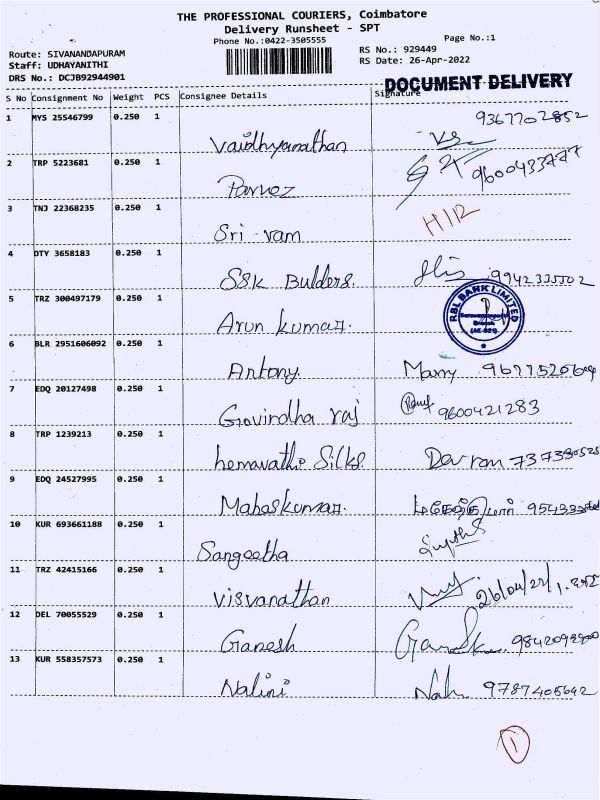 THE PROFESSIONAL COURIERS, Coimbatore
Delivery Runsheet - SPT
Phone No.:0422-3505555
Page No.:1
Route: SIVANANDAPURAM
RS No.: 929449
Staff: UDHAYANITHI
RS Date: 26-Apr-2022
DRS No.: DCJB92944901
DOCUMENT DELIVERY
S No Consignment No Weight PCS Consignee Details Signature
1 MYS 25546799 0.250 1 Vaidhyanathan 9367702852
2 TRP 5223681 0.250 1 Parvez 9600433777
3 TNJ 22368235 0.250 1 Sri ram H/R
4 DTY 3658183 0.250 1 SSK Bulders. 9942335502
5 TRZ 300497179 0.250 1 Arun kumar. RBL BANK LIMITED
6 BLR 2951606092 0.250 1 Antony. Marry
7 EDQ 20127498 0.250 1 Govindha raj 9600421283
8 TRP 1239213 0.250 1 hemavathi Silks.
9 EDQ 24527995 0.250 1
10 KUR 693661188 0.250 1 Sangeetha
11 TRZ 42415166 0.250 1 Visvanathan 26/04/22
12 DEL 70055529 0.250 1 Ganesh
13 KUR 558357573 0.250 1 Nalini 9787405642
1